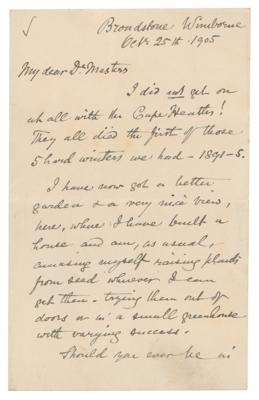 Broadstone Wimborne
Octr. 25th. 1905
My dear Dr. Masters
I did not get on
at all with the Cape Heaths!
They all died the first of those
5 hard winters we had - 1891-5.
I have now got a better
garden & a very nice view,
here, where I have built a
house and am, as usual,
amusing myself raising plants
from seed whenever I can
get them - trying them out of
doors or in a small greenhouse
with varying success.
Should you ever be in